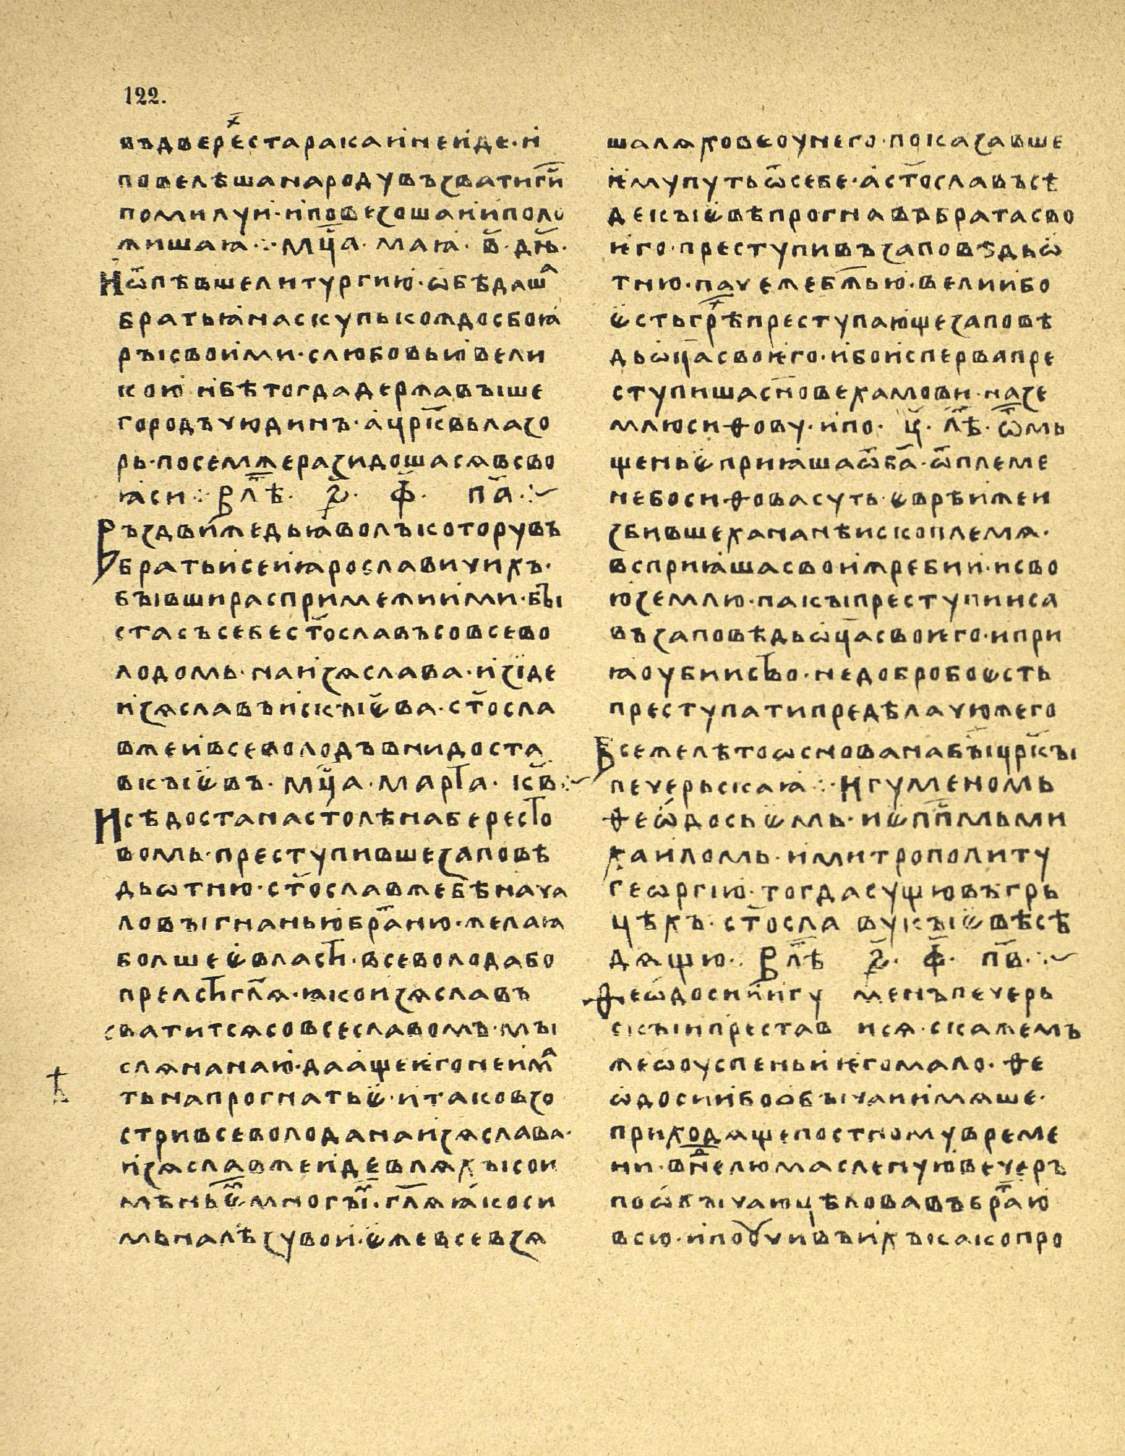 122.
въдверехъстараканнеиде·и
повелѣшанародувъзватиг҃и
помилуи·иповезошаиииполо
жишаꙗ·:·мц҃а·маꙗ·в҃·дн҃ь·
Иѿпѣвшелитургию·ѡбѣдаша
братьꙗнаскупькождосбоꙗ
рꙑсвоими·слюбовьювели
кою·ибѣтогдадержавꙑше
городъчюдинъ·ацр҃квьлазо
рь·посемжеразидошасявсво
ꙗси·:·влѣ҃·҂s҃·ф҃·па҃·:·
Въздвижедьꙗволъкоторувъ
братьисеиꙗрославичихъ·
бꙑвшираспримежиими·бꙑ
стасъсебест҃ославъсовсево
лодомь·наизяслава·изиде
изяславъискꙑєва·ст҃осла
вжеивсеволодъвнидоста
вкꙑєвъ·мц҃а·марта·кв҃·:·
Исѣдостанастолѣнабересто
вомь·преступившезаповѣ
дьѡтню·ст҃ославжебѣнача
ловꙑгнаньюбра҃ню·желаꙗ
болшеєвласти·всеволодабо
прелстигл҃я·ꙗкоизяславъ
сватитсясовсеславомъ·мꙑ
слянанаю·дааще​ѥгонеима
тьнапрогнатьє·итаковзо
стривсеволоданаизяслава·
изяславжеидевляхꙑсои
мѣньємьмногꙑ·гл҃яꙗкоси
мьналѣзувои·єжевсевзя
шаляховеоунего·показавше
ѥмупутьѿсебе·аст҃ославъсѣ
декꙑєвѣпрогнавъбратасво
ѥго·преступивъзаповѣдьѡ
тню·пачежеб҃жью·велиибо
єстьгрѣхъпреступающезаповѣ
дьѡц҃асвоѥго·ибоиспервапре
ступишасн҃овехамови·назе
млюсиѳову·ипо·ц҃·лѣ҃·ѿмь
щеньєприꙗшаѿба҃·ѿплеме
небосиѳовасуть·єврѣижеи
збившехананѣископлемя·
всприꙗшасвоижребии·исво
юземлю·пакꙑпреступииса
възаповѣдьѡц҃асвоѥго·ипри
ꙗоубииство·недобробоєсть
преступатипредѣлачюжего
Всежелѣтоѡснованабꙑцр҃кꙑ
печерьскаꙗ·:·Игуменомь
ѳеѡдосьємь·иєпп҃мьми
хаиломь·имитрополиту
геѡргию·тогдасущювъгрь
цѣхъ·ст҃ославукꙑєвѣсѣ
дящю·:·влѣ҃·҂s҃·ф҃·пв҃·:·
Ѳеѡдосииигуменъпечерь
скꙑипреставися·скажемъ
жеѡоуспеньиѥгомало·ѳе
ѡдосиибоѡбꙑчаиимяше·
приходящепостномувреме
ни·внд҃елюмасленуювечеръ
поѡбꙑчаюцѣловавъбра҃ю
всю·ипоучивъихъкакопро